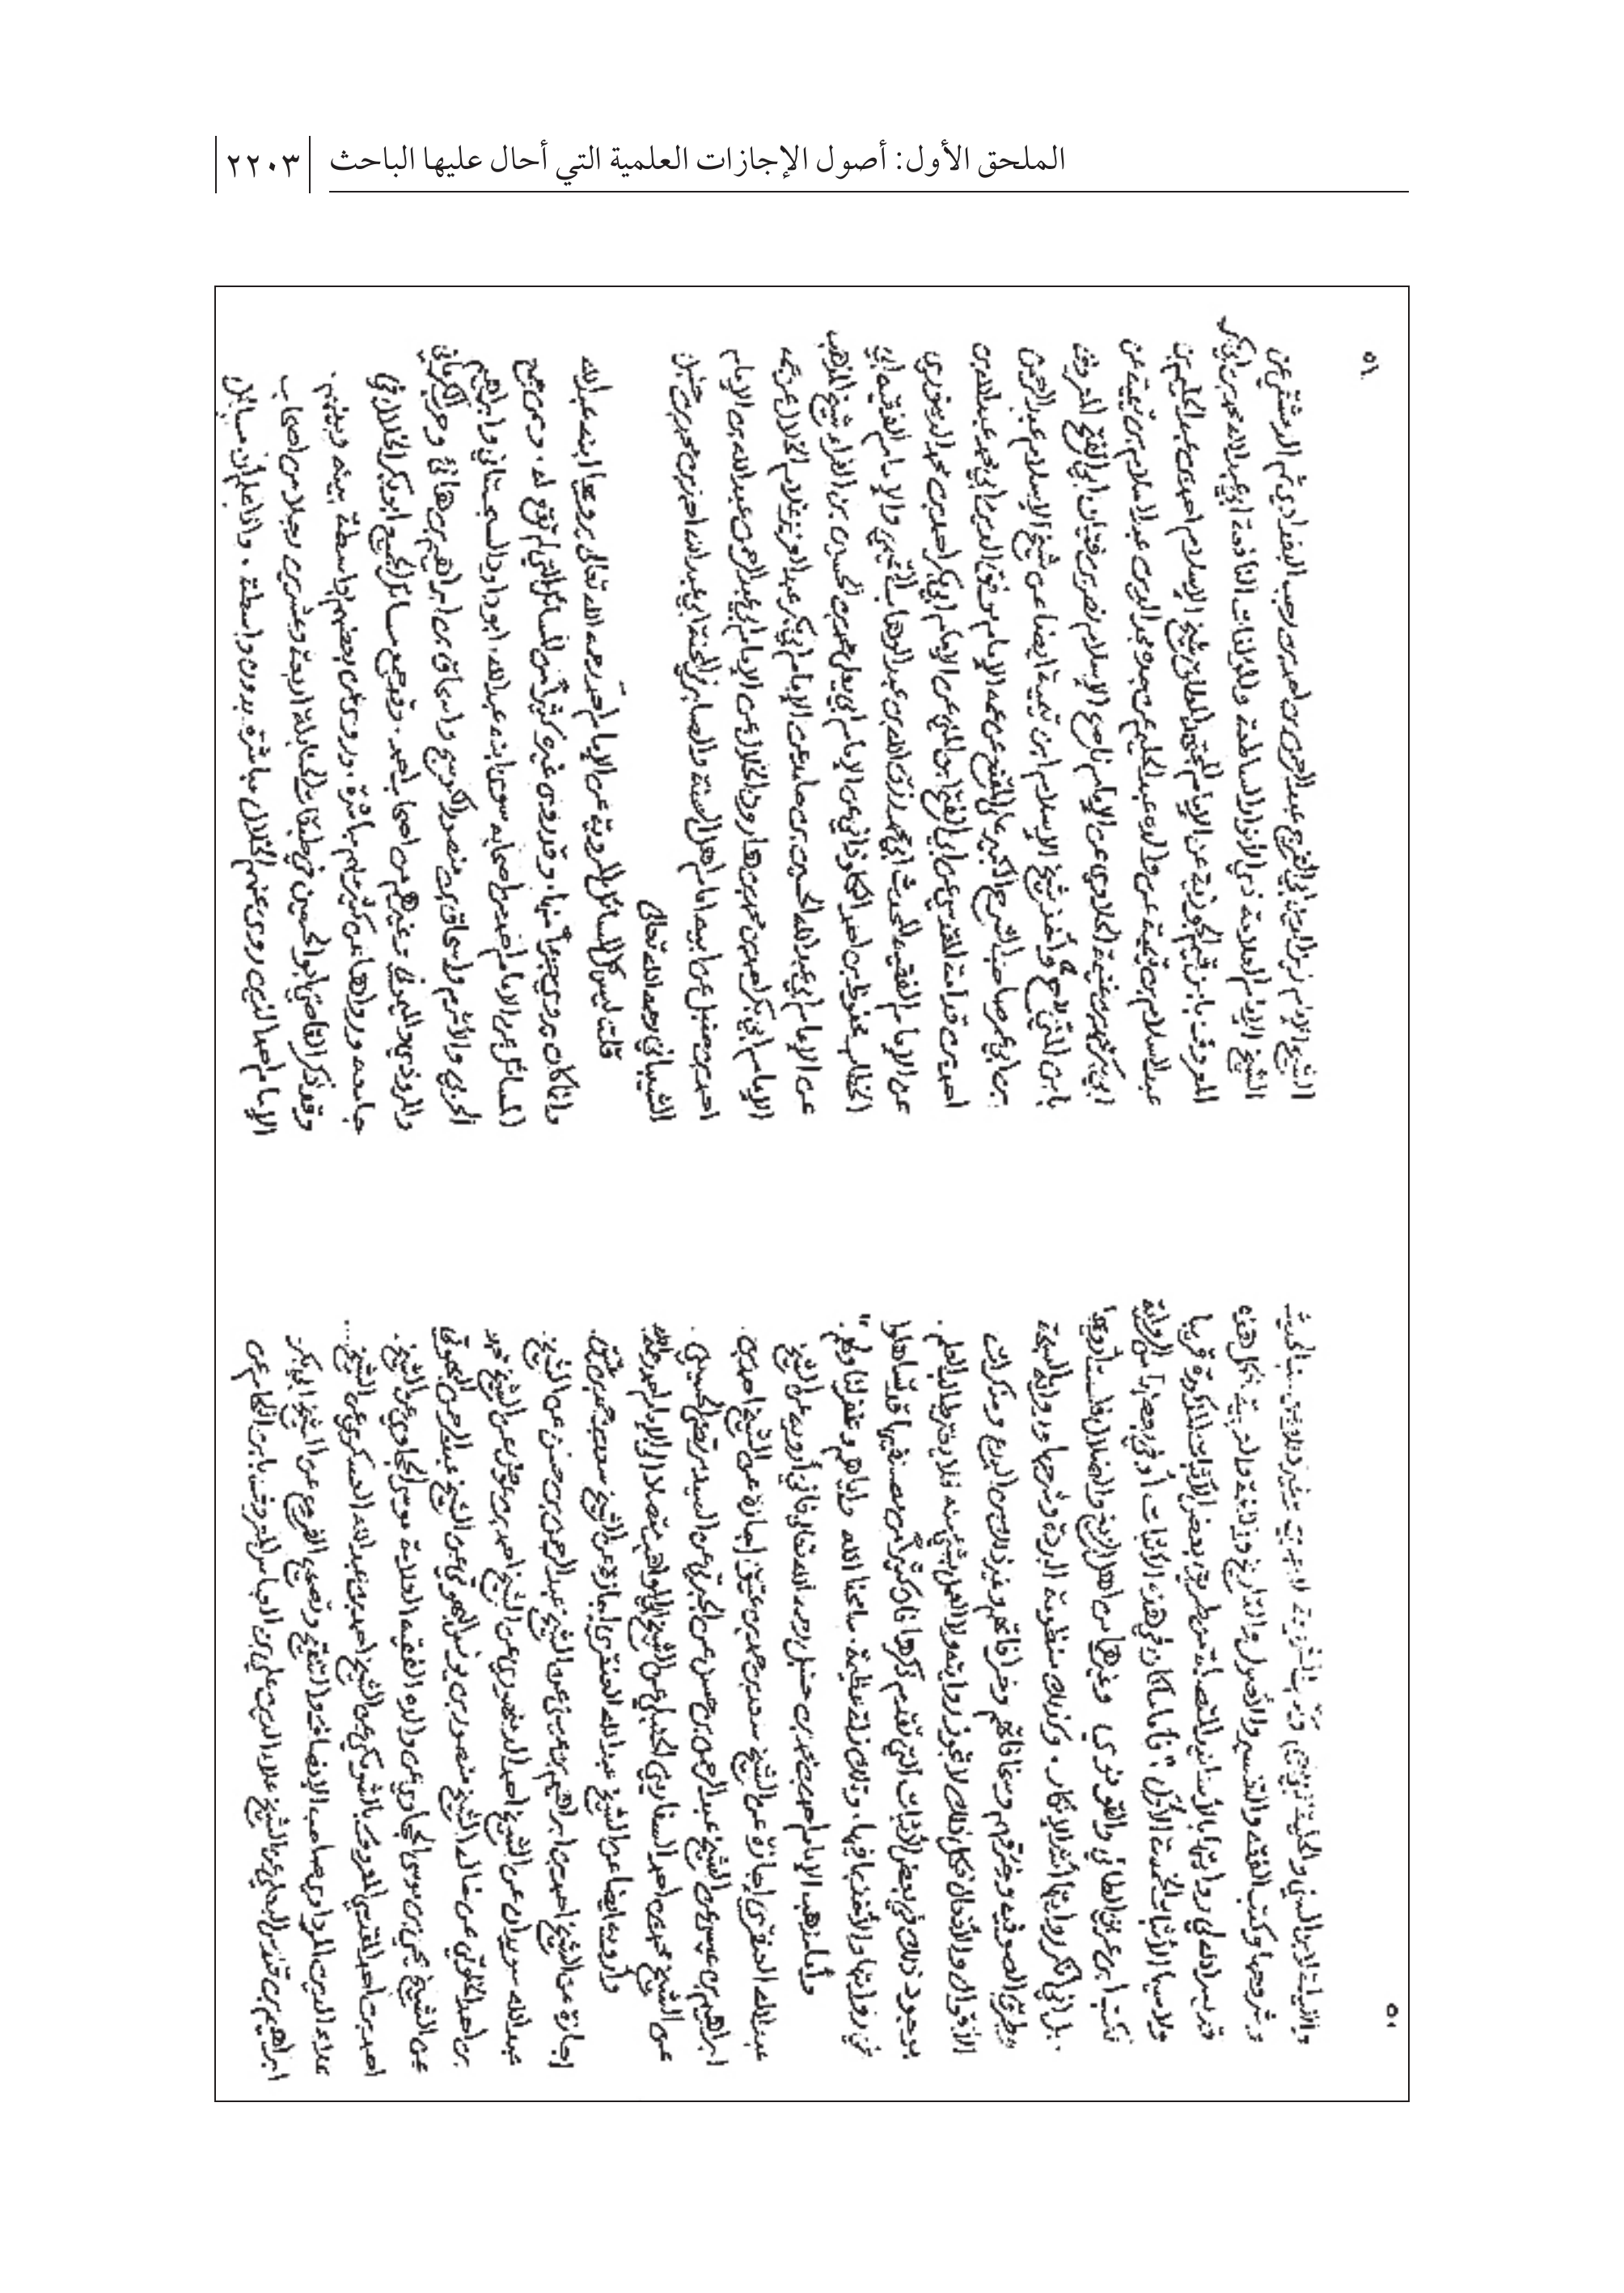 ٢٢٠٣ الملحق الأول: أصول الإجازات العلمية التي أحال عليها الباحث
٥٠
وشروحها وكتب الفقه والتفسير والأصول والتاريخ واللغة والعربية فكل هذه
قد يسر الله لي روايتها بالأسانيد المتصلة من طريق بعض الأثبات المذكورة قريبا
ولاسيما الأثبات الخمسة الأول، فأما ما كان في هذه الأثبات أو في بعضها من الرواية
لكتب ابن عربي الطائي والقونوي وغيرهما من أهل الزيغ والضلال فلست أرويها
بل إني أنكر روايتها أشد الإنكار. وكذلك منظومة البردة وشرحها ورواية السبحة
وطرق الصوفية وخرقهم وسخافاتهم وخرافاتهم وغير ذلك من البدع ومنكرات
الأقوال والأفعال فكل ذلك لا تجوز روايته ولا العمل بشيء منه فلا يغتر طالب العلم
بوجود ذلك في بعض الأثبات التي تقدم ذكرها فإن كثيرا من مصنفيها قد تساهلوا
في روايتها والأخذ بما فيها، وتلك زلة عظيمة. سامحنا الله وإياهم وغفر لنا ولهم.
وأما مذهب الإمام أحمد بن محمد بن حنبل رحمه الله تعالى فإني أرويه عن الشيخ
عبد الله العنقري إجازة عن الشيخ سعد بن حمد بن عتيق إجازة عن الشيخ أحمد بن
ابراهيم بن عيسى عن الشيخ عبد الرحمن بن حسن عن الجبرتي عن السيد مرتضى الحسيني
عن الشيخ محمد بن أحمد السفاريني الحنبلي عن الشيخ أبي المواهب متصلا إلى الإمام أحمد رحمه الله
وأرويه أيضا عن الشيخ عبد الله العنقري إجازة عن الشيخ سعد بن حمد بن عتيق
إجازة عن الشيخ أحمد بن ابراهيم بن عيسى عن الشيخ عبد الرحمن بن حسن عن الشيخ
عبد الله سويدان عن الشيخ أحمد الدمنهوري عن الشيخ أحمد بن عوض عن الشيخ محمد
بن أحمد الخلوتي عن خاله الشيخ منصور بن يونس البهوتي عن الشيخ عبد الرحمن البهوتي
عن الشيخ يحيى بن موسى الحجاوي عن والده الفقيه العلامة موسى الحجاوي عن الشيخ
أحمد بن أحمد المقدسي المعروف بالشويكي عن الشيخ أحمد بن عبد الله العسكري عن الشيخ
علاء الدين المرداوي صاحب الإنصاف والتنقيح وتصحيح الفروع عن الشيخ أبي بكر
ابراهيم بن قندس البعلي عن الشيخ علاء الدين علي بن العباس المعروف بابن اللحام عن
٥١
الشيخ الإمام زين الدين أبي الفرج عبد الرحمن بن أحمد بن رجب البغدادي ثم الدمشقي عن
الشيخ الإمام العلامة ذي الأنوار الساطعة والمؤلفات النافعة أبي عبد الله محمد بن أبي بكر
المعروف بابن قيم الجوزية عن الإمام المجتهد المطلق شيخ الإسلام أحمد بن عبد الحليم بن
عبد السلام بن تيمية عن والده عبد الحليم عن جده مجد الدين عبد السلام بن تيمية عن
أبي بكر محمد بن غنيمة الحلاوي عن الإمام ناصح الإسلام نصر بن فتيان أبي الفتح المعروف
بابن المني (ح) وأخذ شيخ الإسلام ابن تيمية أيضا عن شيخ الإسلام عبد الرحمن
بن أبي عمر صاحب الشرح الكبير على المقنع عن عمه الإمام موفق الدين أبي محمد عبد الله بن
أحمد بن قدامة المقدسي عن أبي الفتح ابن المني عن الإمام أبي بكر أحمد بن محمد الدينوري
عن الإمام الفقيه المحدث أبي محمد رزق الله بن عبد الوهاب التميمي والإمام الفقيه أبي
الخطاب محفوظ بن أحمد الكلوذاني عن الإمام أبي يعلى محمد بن الحسين بن الفراء شيخ المذهب
عن الإمام أبي عبد الله الحسين بن حامد عن الإمام أبي بكر عبد العزيز غلام الخلال عن
الإمام أبي بكر أحمد بن محمد بن هارون الخلال عن الإمام أبي عبد الرحمن عبد الله بن الإمام
أحمد بن حنبل عن أبيه إمام أهل السنة والصابر في المحنة أبي عبد الله أحمد بن محمد بن حنبل
الشيباني رحمه الله تعالى
قلت ليس كل المسائل المروية عن الإمام أحمد رحمه الله تعالى يرويها ابنه عبد الله
وإنما كان يروي جزءا منها. وقد روى غيره كثيرا من المسائل التي لم تقع له. وممن جمع
المسائل عن الإمام أحمد من أصحابه سوى ابنه عبد الله، أبو داود السجستاني وابراهيم
الحربي والأثرم وإسحاق بن منصور الكوسج وإسحاق بن ابراهيم بن هانئ وحرب الكرماني
والمروذي والميموني وغيرهم من أصحاب أحمد. وقد جمع مسائل الجميع أبو بكر الخلال في
جامعه ورواها عن كثير منهم مباشرة. وروى عن بعضهم بواسطة بينه وبينهم.
وقد ذكر القاضي أبو الحسين في طبقات الحنابلة أربعة وعشرين رجلا من أصحاب
الإمام أحمد الذين روى عنهم الخلال مباشرة بدون واسطة.